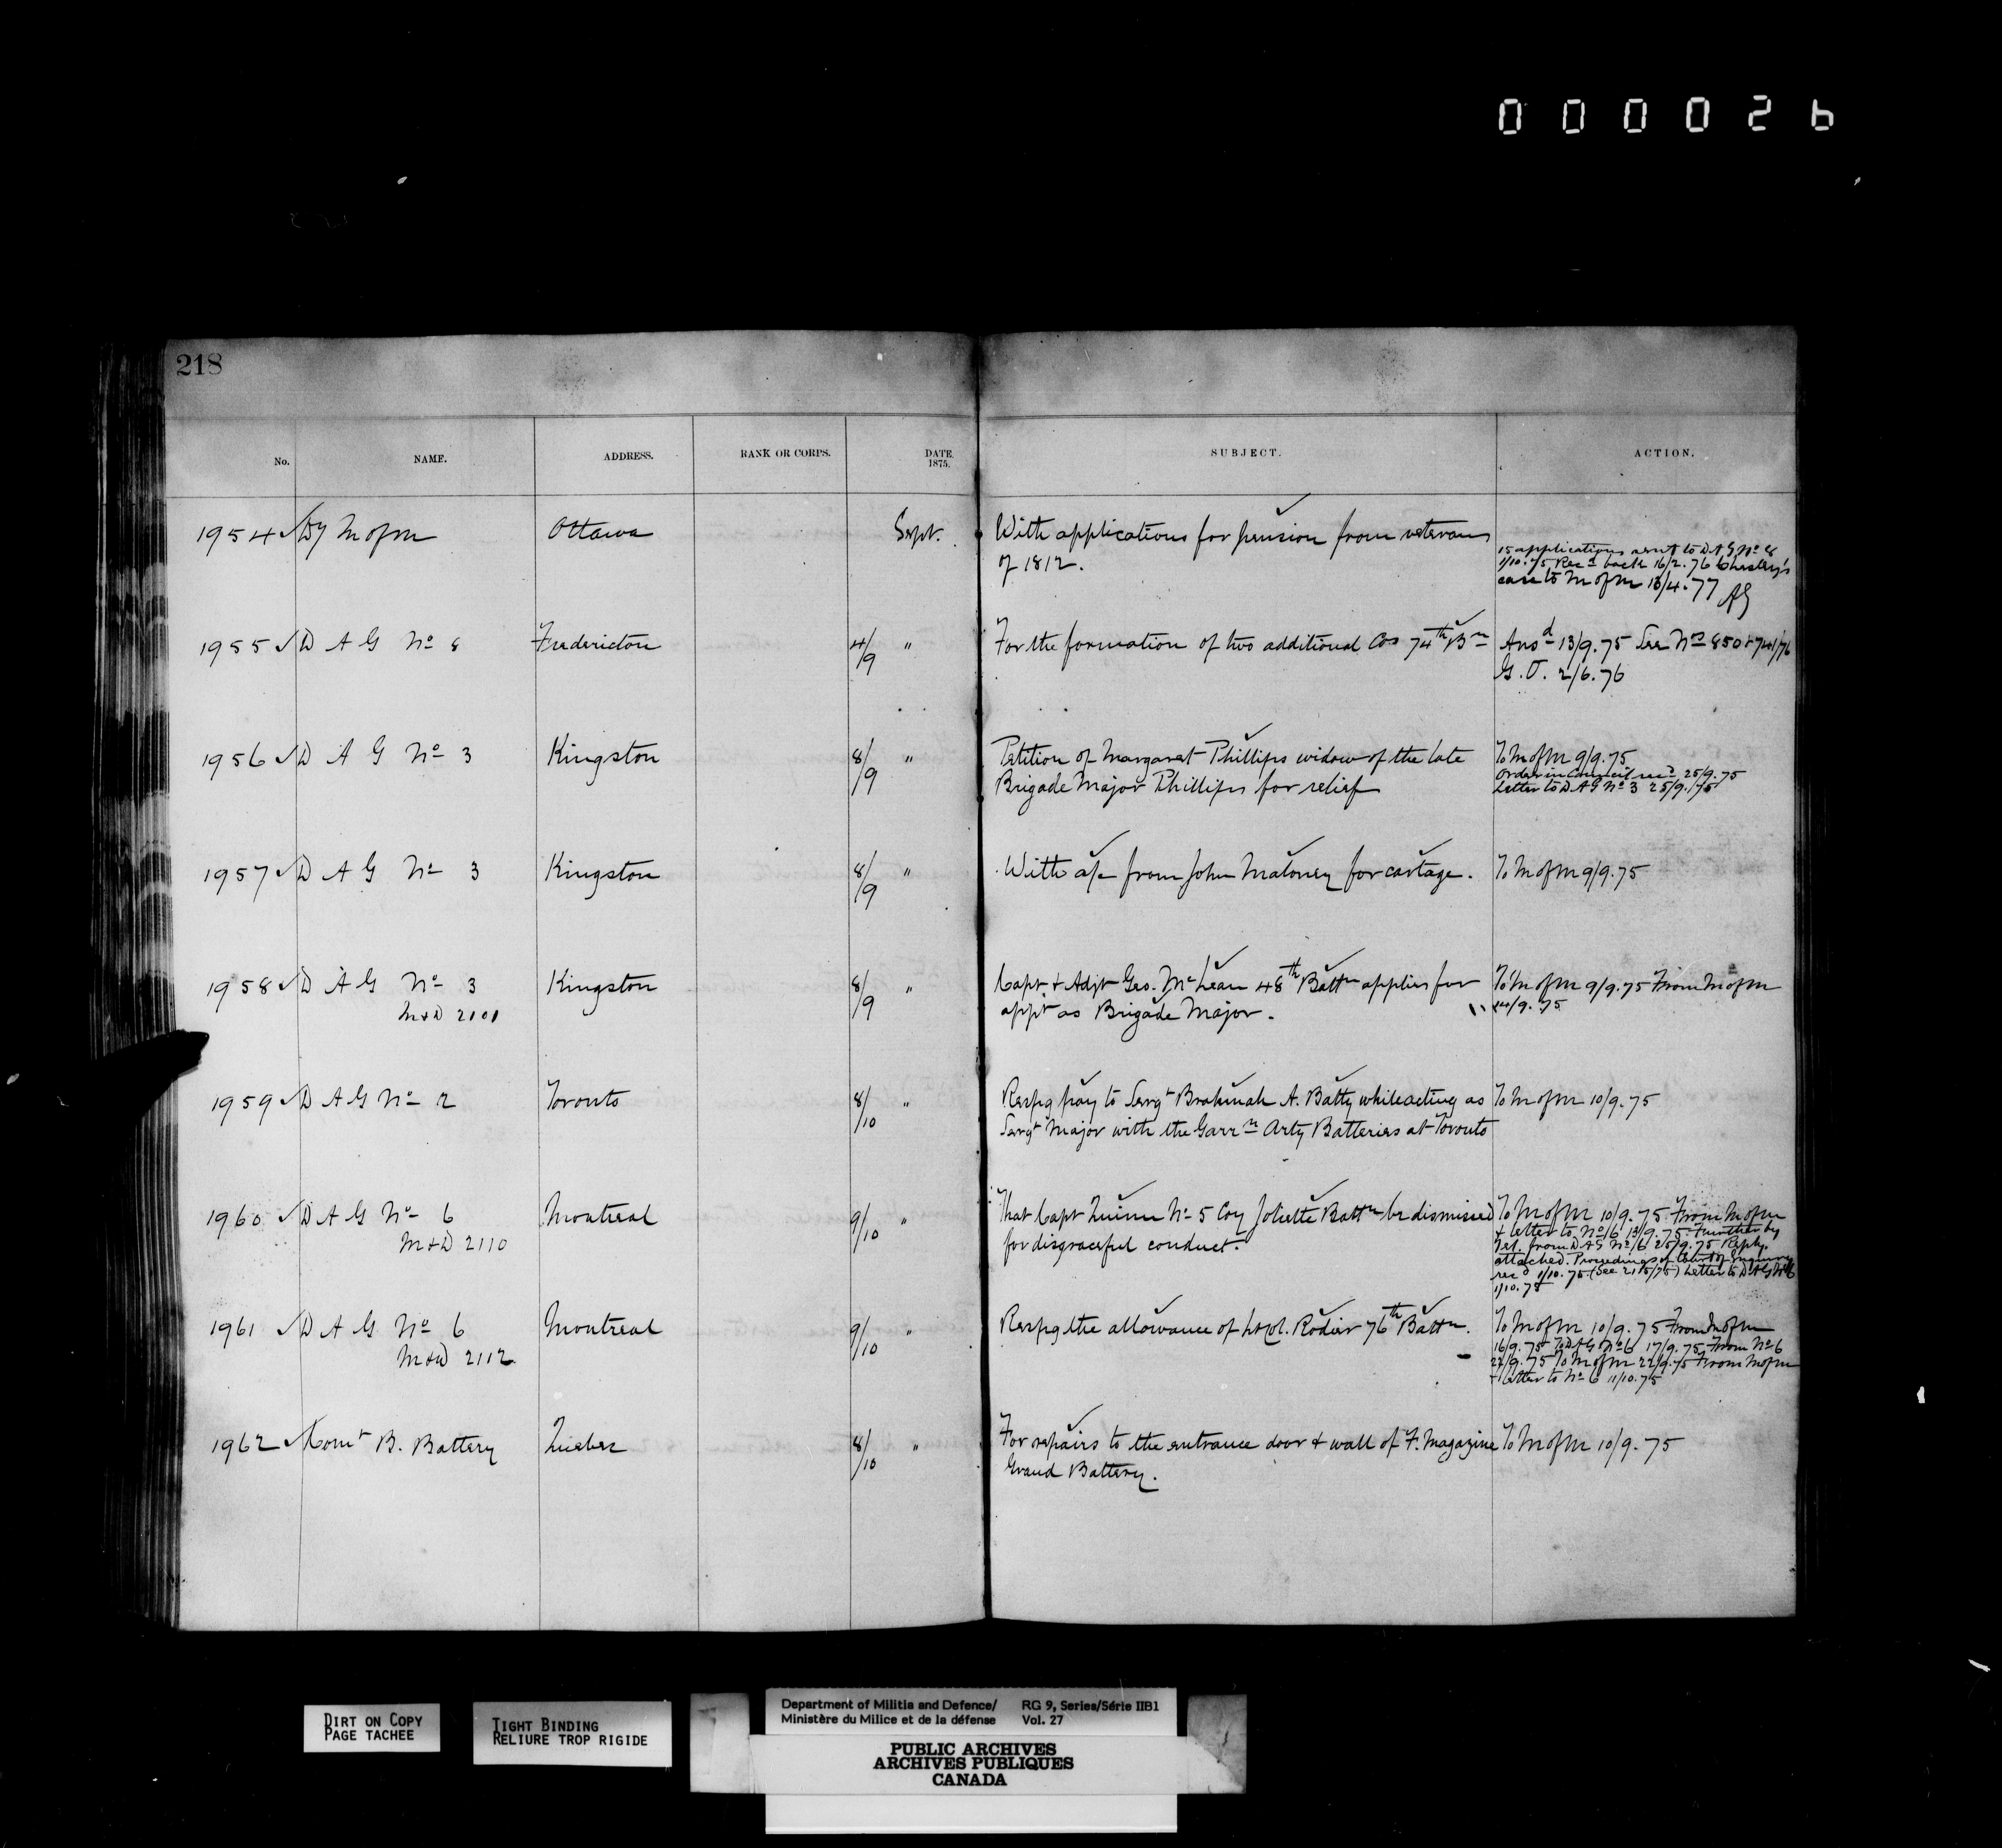 000026
218
No. NAME. ADDRESS. RANK OR CORPS. DATE 1875. SUBJECT. ACTION.
1954 Dy M of M Ottawa Sept. With applications for pension from veterans
of 1812.
15 applications sent to D A G No 8
1/10.75 Recd back 16/2.76 Chesley's
case to M of M 13/4.77
1955 D A G No 8 Fredericton 4/9 " For the formation of two additional Cos 74th Bn Ansd 13/9.75 See Nos 850 & 741/76
G.O. 2/6.76
1956 D A G No 3 Kingston 8/9 " Petition of Margaret Phillips widow of the late To M of M 9/9.75
Brigade Major Phillips for relief
Order in Council recd 25/9.75
Letter to D A G No 3 25/9/75
1957 D A G No 3 Kingston 8/9 " With a/c from John Maloney for cartage. To M of M 9/9.75
1958 D A G No 3 Kingston 8/9 " Capt & Adjt Geo. McLean 48th Battn applies for To M of M 9/9.75 From M of M
M&D 2101 appt as Brigade Major. 14/9.75
1959 D A G No 2 Toronto 8/10 " Respg pay to Sergt A. Batty while acting as To M of M 10/9.75
Sergt Major with the Garrn Arty Batteries at Toronto
1960 D A G No 6 Montreal 9/10 " That Capt Quinn No 5 Coy Joliette Battn be dismissed To M of M 10/9.75 From M of M
M&D 2110 for disgraceful conduct.
& letter to No 6 13/9.75 Further by
Tel. from D A G No 6 25/9.75 Reply
attached. Proceedings of Court of Enquiry
recd 1/10.75 (See 2175/75) Letter to D A G No 6
1/10.75
1961 D A G No 6 Montreal 9/10 " Respg the allowance of Lt Col. Rodier 76th Battn. To M of M 10/9.75 From M of M
M&D 2112
16/9.75 To D A G No 6 17/9.75 From No 6
22/9.75 To M of M 22/9.75 From M of M
& letter to No 6 11/10.75
1962 Comt B. Battery Quebec 8/10 " For repairs to the entrance door & wall of F. Magazine To M of M 10/9.75
Grand Battery.
DIRT ON COPY
PAGE TACHEE
TIGHT BINDING
RELIURE TROP RIGIDE
Department of Militia and Defence/ RG 9, Series/Série IIB1
Ministère du Milice et de la défense Vol. 27
PUBLIC ARCHIVES
ARCHIVES PUBLIQUES
CANADA